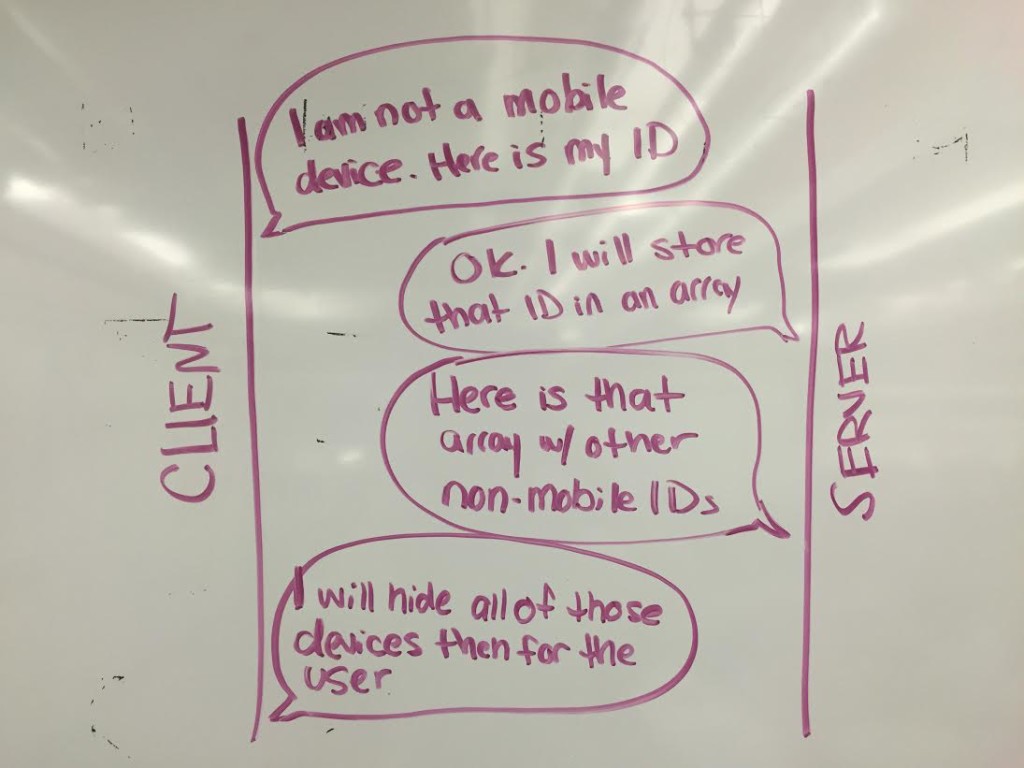 I am not a mobile
device. Here is my ID
Ok. I will store
that ID in an array
Here is that
array w/ other
non-mobile IDs
I will hide all of those
devices then for the
user
CLIENT
SERVER